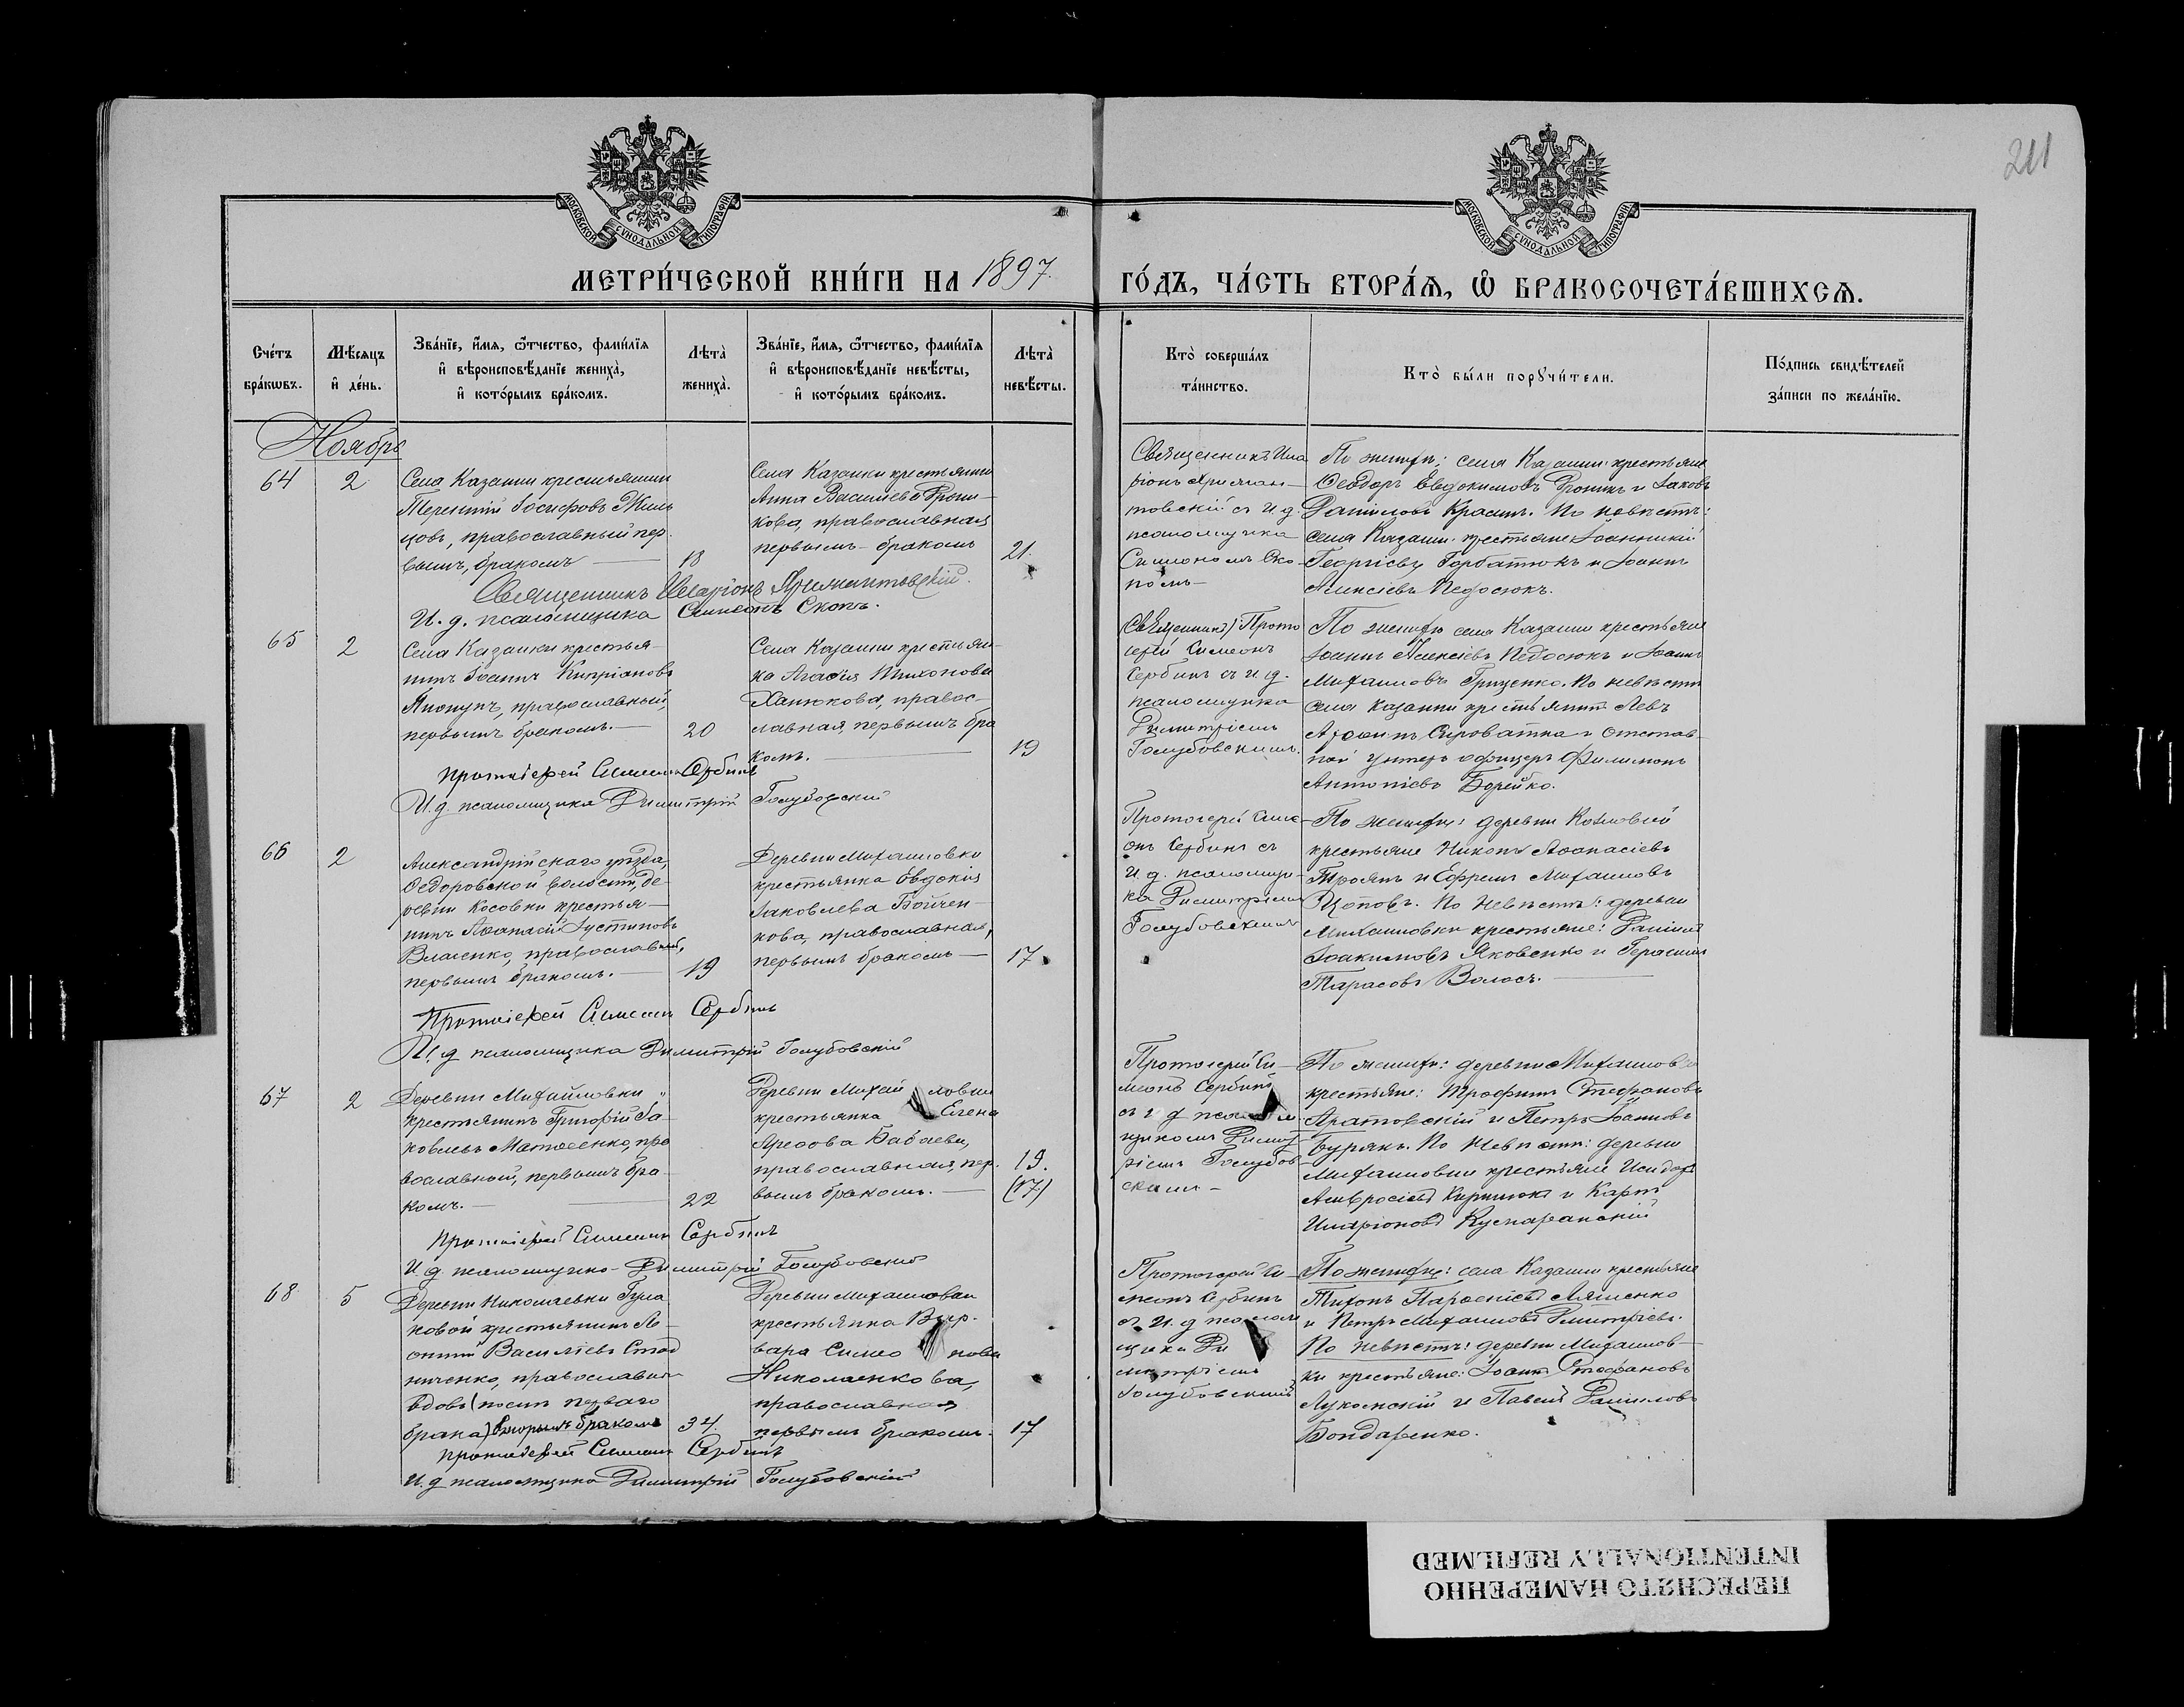 211
МОСКОВСКОЙ СѴНОДАЛЬНОЙ ТИПОГРАФІИ
МОСКОВСКОЙ СѴНОДАЛЬНОЙ ТИПОГРАФІИ
МЕТРИ́ЧЕСКОЙ КНИ́ГИ НА 1897. ГО́ДЪ, ЧА́СТЬ ВТОРА́Ѧ, Ѽ БРАКОСОЧЕТА́ВШИХСѦ.
Сче́тъ бра́кѡвъ.
Мѣ́сяцъ и҆ де́нь.
Зва́нїе, и҆́мя, ѻ҆́тчество, фами́лїя
и҆ вѣроисповѣ́данїе жениха̀,
и҆ кото́рымъ бра́комъ.
Лѣта̀ жениха̀.
Зва́нїе, и҆́мя, ѻ҆́тчество, фами́лїя
и҆ вѣроисповѣ́данїе невѣ́сты,
и҆ кото́рымъ бра́комъ.
Лѣта̀ невѣ́сты.
Кто̀ соверша́лъ
та́инство.
Кто̀ бы́ли порꙋчи́тели.
По́дпись свидѣ́телей
за́писи по жела́нїю.
Ноябрь
64
2
Села Казанки крестьянинъ
Терентій Іосифовъ
православный пер
вымъ, бракомъ
18
Села Казанки крестьянка
Анна Васильева
кова, православная
первымъ бракомъ
21.
Священникъ Ила
ріонъ Хрисман
товскій съ И. д.
псаломщика
Симеономъ Ско
помъ
По женихѣ: села Казанки крестьяне
Ѳеодоръ Евдокимовъ и Іаковъ
Даніиловъ По невѣстѣ:
села Казанки крестьяне Іоанникій
Георгіевъ Горбатюкъ и Іоаннъ
Алексіевъ Недосюкъ.
Священникъ Иларіонъ
И. д. псаломщика Симеонъ Скопъ.
65
2
Села Казанки крестья-
нинъ Іоаннъ Кипріановъ
православный,
первымъ бракомъ.
20
Села Казанки крестьян-
ка Агафія Тихонова
Ханюкова, правос-
лавная, первымъ бра
комъ.
19
(Священникъ) Прото
іерей Симеонъ
Сербинъ съ и. д.
псаломщика
Димитріемъ
Голубовскимъ.
По женихѣ села Казанки крестьяне
Іоаннъ Алексіевъ Недосюкъ и Іоаннъ
Михаиловъ Гриценко. По невѣстѣ
села Казанки крестьянинъ Левъ
Сыроватка и отстав
ной унтеръ офицеръ Филимонъ
Антоніевъ Борейко.
Протоіерей Симеонъ Сербинъ
И. д. псаломщика Димитрій Голубовскій
66
2
Александрійскаго уѣзда,
Ѳедоровской волости, де-
ревни Косовки крестья-
нинъ Аѳанасій Іустиновъ
Власенко, православный,
первымъ бракомъ.
19
Деревни Михаиловки
крестьянка Евдокія
Іаковлева Бойчен-
кова, православная,
первымъ бракомъ
17.
Протоіерей Симе
онъ Сербинъ съ
И. д. псаломщи-
ка Димитріемъ
Голубовскимъ
По женихѣ: деревни
крестьяне Никонъ Аѳанасіевъ
Троянъ и Ефремъ Михаиловъ
По невѣстѣ: деревни
Михаиловки крестьяне: Даніилъ
Іоакимовъ Яковенко и Герасимъ
Тарасовъ Волосъ.
Протоіерей Симеонъ Сербинъ
И. д. псаломщика Димитрій Голубовскій
67
2
Деревни Михайловки
крестьянинъ Григорій Іа-
ковлевъ Матвеенко, пра
вославный, первымъ бра-
комъ.
22
Деревни Михайловки
крестьянка Елена
Бабаева,
православная, пер-
вымъ бракомъ.
19.
(17)
Протоіерей Си-
меонъ Сербинъ
съ и д псалом
щикомъ Димит
ріемъ Голубов
скимъ
По женихѣ: деревни Михаиловки
крестьяне: Трофимъ Стефановъ
Аратовскій и Петръ Іоанновъ
Бурякъ. По невѣстѣ: деревни
Михаиловки крестьяне Исидоръ
Амвросіевъ и Карпъ
Иларіоновъ
Протоіерей Симеонъ Сербинъ
И. д. псаломщика Димитрій Голубовскій
68
5
Деревни Николаевки Гула
новой крестьянинъ Ле-
онтій Василіевъ Стад
ниченко, православный
вдовъ (послѣ перваго
брака) вторымъ бракомъ
34.
Деревни Михаиловки
крестьянка Вар-
вара Симеонова
Николаенкова,
православная
первымъ бракомъ.
17
Протоіерей Си-
меонъ Сербинъ
съ И. д псалом
щика Ди
митріемъ
Голубовскимъ
По женихѣ: села Казанки крестьяне
Тихонъ Парѳеніевъ Ляшенко
и Петръ Михаиловъ Димитріевъ.
По невѣстѣ: деревни Михаилов-
ки крестьяне: Іоаннъ Стефановъ
Лукомскій и Павелъ Даніиловъ
Бондаренко.
Протоіерей Симеонъ Сербинъ
И. д псаломщика Димитрій Голубовскій
ПЕРЕСНЯТО НАМЕРЕННО
INTENTIONALLY REFILMED